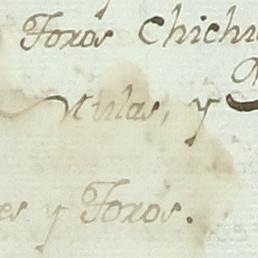 Foros Chichu
Nulas, y
es y Foros.